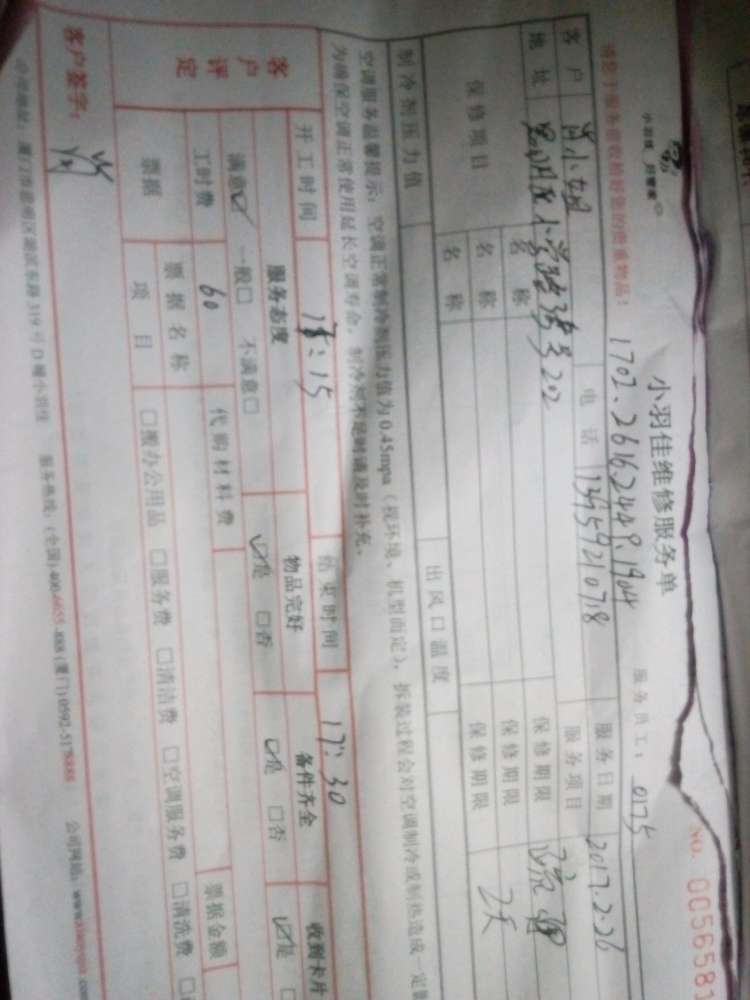 小羽佳 好管家
小羽佳维修服务单
NO. 0056581
1702.26162449.1904
服务员工: 0175
请您于服务前收拾好您的贵重物品!
客户 肖小姐
电话 13959210718
服务日期 2017.2.26
地址
服务项目
保修项目
名称
保修期限
名称
保修期限
名称
保修期限 2天
制冷剂压力值
出风口温度
空调服务温馨提示: 空调正常制冷剂压力值为0.45mpa (视环境、机型而定), 拆装过程会对空调制冷或制热造成一定
为确保空调正常使用延长空调寿命, 制冷剂不足时请及时补充。
开工时间
结束时间 17:30
客户评定
服务态度
物品完好
备件齐全
收到卡片
满意☑ 一般□ 不满意□
☑是 □否
☑是 □否
☑是
工时费 60
代购材料费
票据
票据名称
票据金额
项目
□办公用品 □服务费 □清洁费 □空调服务费 □清洗费
客户签字:
公司地址: 厦门市思明区湖滨东路319号D幢小羽佳 服务热线: (全国)400-6655-888 (厦门)0592-5178888 公司网站: